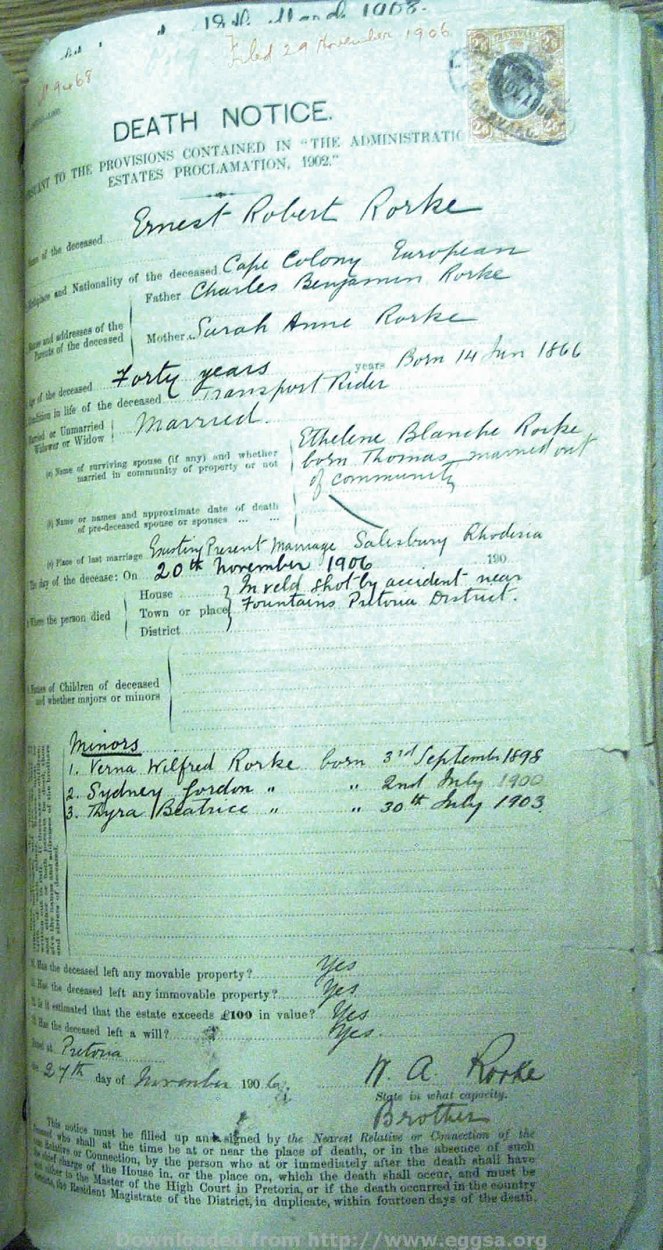 18th March 1908.
Filed 29 November 1906
DEATH NOTICE.
TO THE PROVISIONS CONTAINED IN "THE ADMINISTRATIO
ESTATES PROCLAMATION, 1902."
of the deceased Ernest Robert Rorke
and Nationality of the deceased Cape Colony European
Father Charles Benjamin Rorke
and addresses of the
Parents of the deceased
Mother Sarah Anne Rorke
of the deceased Forty years years Born 14 Jun 1866
in life of the deceased Transport Rider
or Unmarried
Widower or Widow Married
(a) Name of surviving spouse (if any) and whether
married in community of property or not
Ethelene Blanche Rorke
born Thomas married out
of community
(b) Name or names and approximate date of death
of pre-deceased spouse or spouses ... ...
(c) Place of last marriage Existing Present Marriage Salisbury Rhodesia
day of the decease: On 20th November 1906 190
the person died
House
Town or place
District
In veld shot by accident near
Fountains Pretoria District.
of Children of deceased
and whether majors or minors
Minors
1. Verna Wilfred Rorke born 3rd September 1898
2. Sydney Gordon " " 2nd July 1900
3. Thyra Beatrice " " 30th July 1903
and sisters of deceased.
Has the deceased left any movable property? Yes
Has the deceased left any immovable property? Yes
Is it estimated that the estate exceeds £100 in value? Yes
Has the deceased left a will? Yes.
at Pretoria
27th day of November 190
W. A. Rorke
State in what capacity.
Brother
This notice must be filled up and signed by the Nearest Relative or Connection of the
who shall at the time be at or near the place of death, or in the absence of such
Relative or Connection, by the person who at or immediately after the death shall have
chief charge of the House in, or the place on, which the death shall occur, and must be
either to the Master of the High Court in Pretoria, or if the death occurred in the country
the Resident Magistrate of the District, in duplicate, within fourteen days of the death.
Downloaded from http://www.eggsa.org